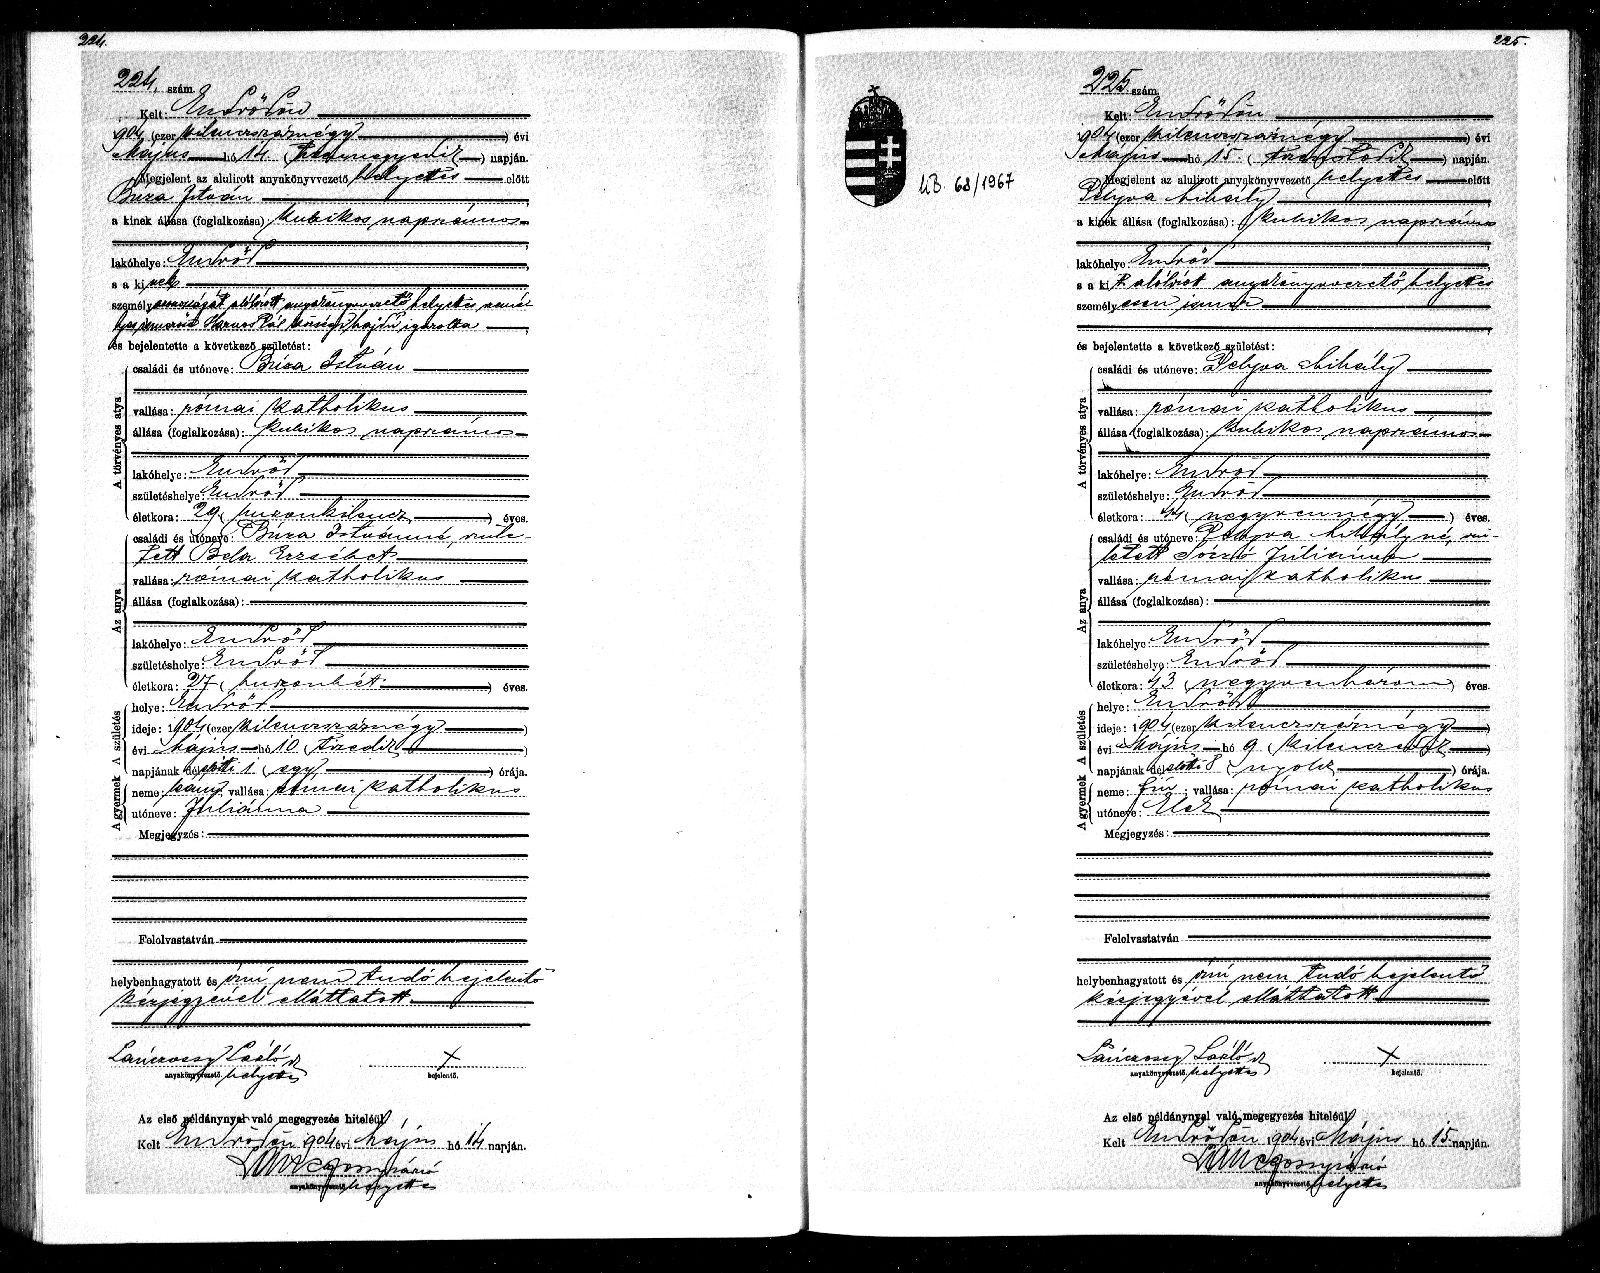 224.
224. szám.
Kelt: Endrődön
904 (ezer kilenczszáznégy) évi
Május hó 14 (tizennegyedik) napján.
Megjelent az alulirott anyakönyvvezető helyettes előtt
Búza István
a kinek állása (foglalkozása): kubikos napszámos
lakóhelye: Endrőd
s a kinek
személyazonosságát alólírott anyakönyvvezető helyettes szemé-
lyes ismerőse Pál községi hajdú igazolta
és bejelentette a következő születést:
A törvényes atya
családi és utóneve: Búza István
vallása: római katholikus
állása (foglalkozása): kubikos napszámos
lakóhelye: Endrőd
születéshelye: Endrőd
életkora: 29 (huszonkilencz) éves.
Az anya
családi és utóneve: Búza Istvánné, szüle-
tett Bela Erzsébet
vallása: római katholikus
állása (foglalkozása):
lakóhelye: Endrőd
születéshelye: Endrőd
életkora: 27 (huszonhét) éves.
A születés
helye: Endrőd
ideje: 1904 (ezer kilenczszáznégy)
évi Május hó 10 (tizedik)
napjának délelőtti 1 (egy) órája.
A gyermek
neme: leány; vallása: római katholikus
utóneve: Juliánna
Megjegyzés:
Felolvastatván
helybenhagyatott és írni nem tudó bejelentő
kézjegyével elláttatott.
Lánczossy László x
anyakönyvvezető. helyettes bejelentő.
Az első példánynyal való megegyezés hiteléül
Kelt Endrődön 904 évi Május hó 14 napján.
Lánczossy László
anyakönyvvezető helyettes
225.
KB. 68/1967
225. szám.
Kelt: Endrődön
904 (ezer kilenczszáznégy) évi
Május hó 15. (tizenötödik) napján.
Megjelent az alulirott anyakönyvvezető helyettes előtt
Pelyva Mihály
a kinek állása (foglalkozása): kubikos napszámos
lakóhelye: Endrőd
s a kit alólírott anyakönyvvezető helyettes
személyesen ismer
és bejelentette a következő születést:
A törvényes atya
családi és utóneve: Pelyva Mihály
vallása: római katholikus
állása (foglalkozása): kubikos napszámos
lakóhelye: Endrőd
születéshelye: Endrőd
életkora: 44 (negyvennégy) éves.
Az anya
családi és utóneve: Pelyva Mihályné, szü-
letett Juliánna
vallása: római katholikus
állása (foglalkozása):
lakóhelye: Endrőd
születéshelye: Endrőd
életkora: 43 (negyvenhárom) éves.
A születés
helye: Endrőd
ideje: 1904 (ezer kilenczszáznégy)
évi Május hó 9 (kilenczedik)
napjának délelőtti 8 (nyolcz) órája.
A gyermek
neme: fiú; vallása: római katholikus
utóneve: Elek
Megjegyzés:
Felolvastatván
helybenhagyatott és írni nem tudó bejelentő
kézjegyével elláttatott
Lánczossy László x
anyakönyvvezető. helyettes bejelentő.
Az első példánynyal való megegyezés hiteléül
Kelt Endrődön 1904 évi Május hó 15 napján.
Lánczossy László
anyakönyvvezető helyettes